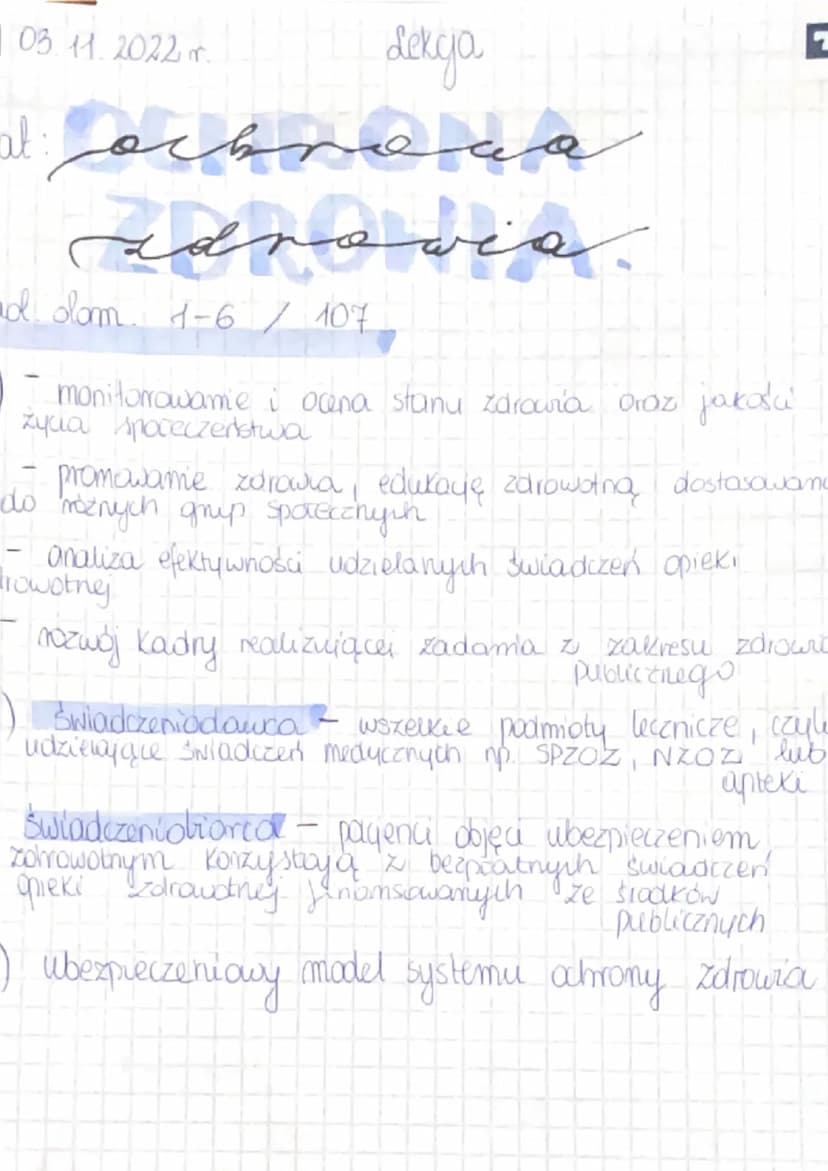 03. 11. 2022 r. Lekcja
at: OCHRONA
ochrona
ZDROWIA.
zdrowia
ad. dom. 1-6 / 107
) - monitorowanie i ocena stanu zdrowia oraz jakości
życia społeczeństwa
- promowanie zdrowia, edukację zdrowotną dostosowan
do różnych grup społecznych
- analiza efektywności udzielanych świadczeń opieki
rowotnej
- rozwój kadry realizującej zadania z zakresu zdrowi
publicznego
) świadczeniodawca - wszelkie podmioty lecznicze, czyli
udzielające świadczeń medycznych np. SPZOZ, NZOZ lub
apteki
świadczeniobiorca - pacjenci objęci ubezpieczeniem
zdrowotnym korzystają z bezpłatnych świadczeń
opieki zdrowotnej finansowanych ze środków
publicznych
) ubezpieczeniowy model systemu ochrony zdrowia